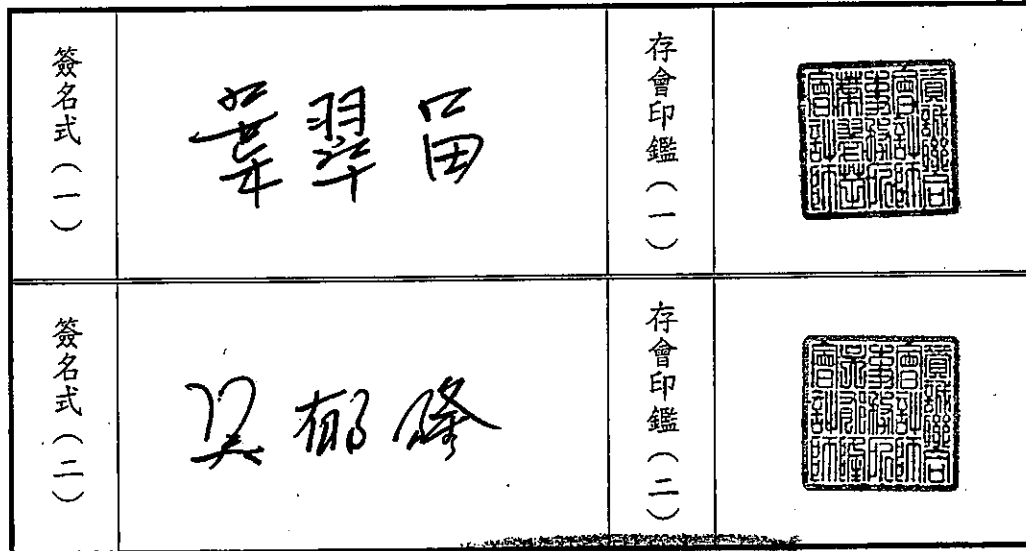 簽名式（一）
葉翠苗
存會印鑑（一）
資誠聯合
會計師
事務所
葉翠苗
會計師
簽名式（二）
吳郁隆
存會印鑑（二）
資誠聯合
會計師
事務所
吳郁隆
會計師